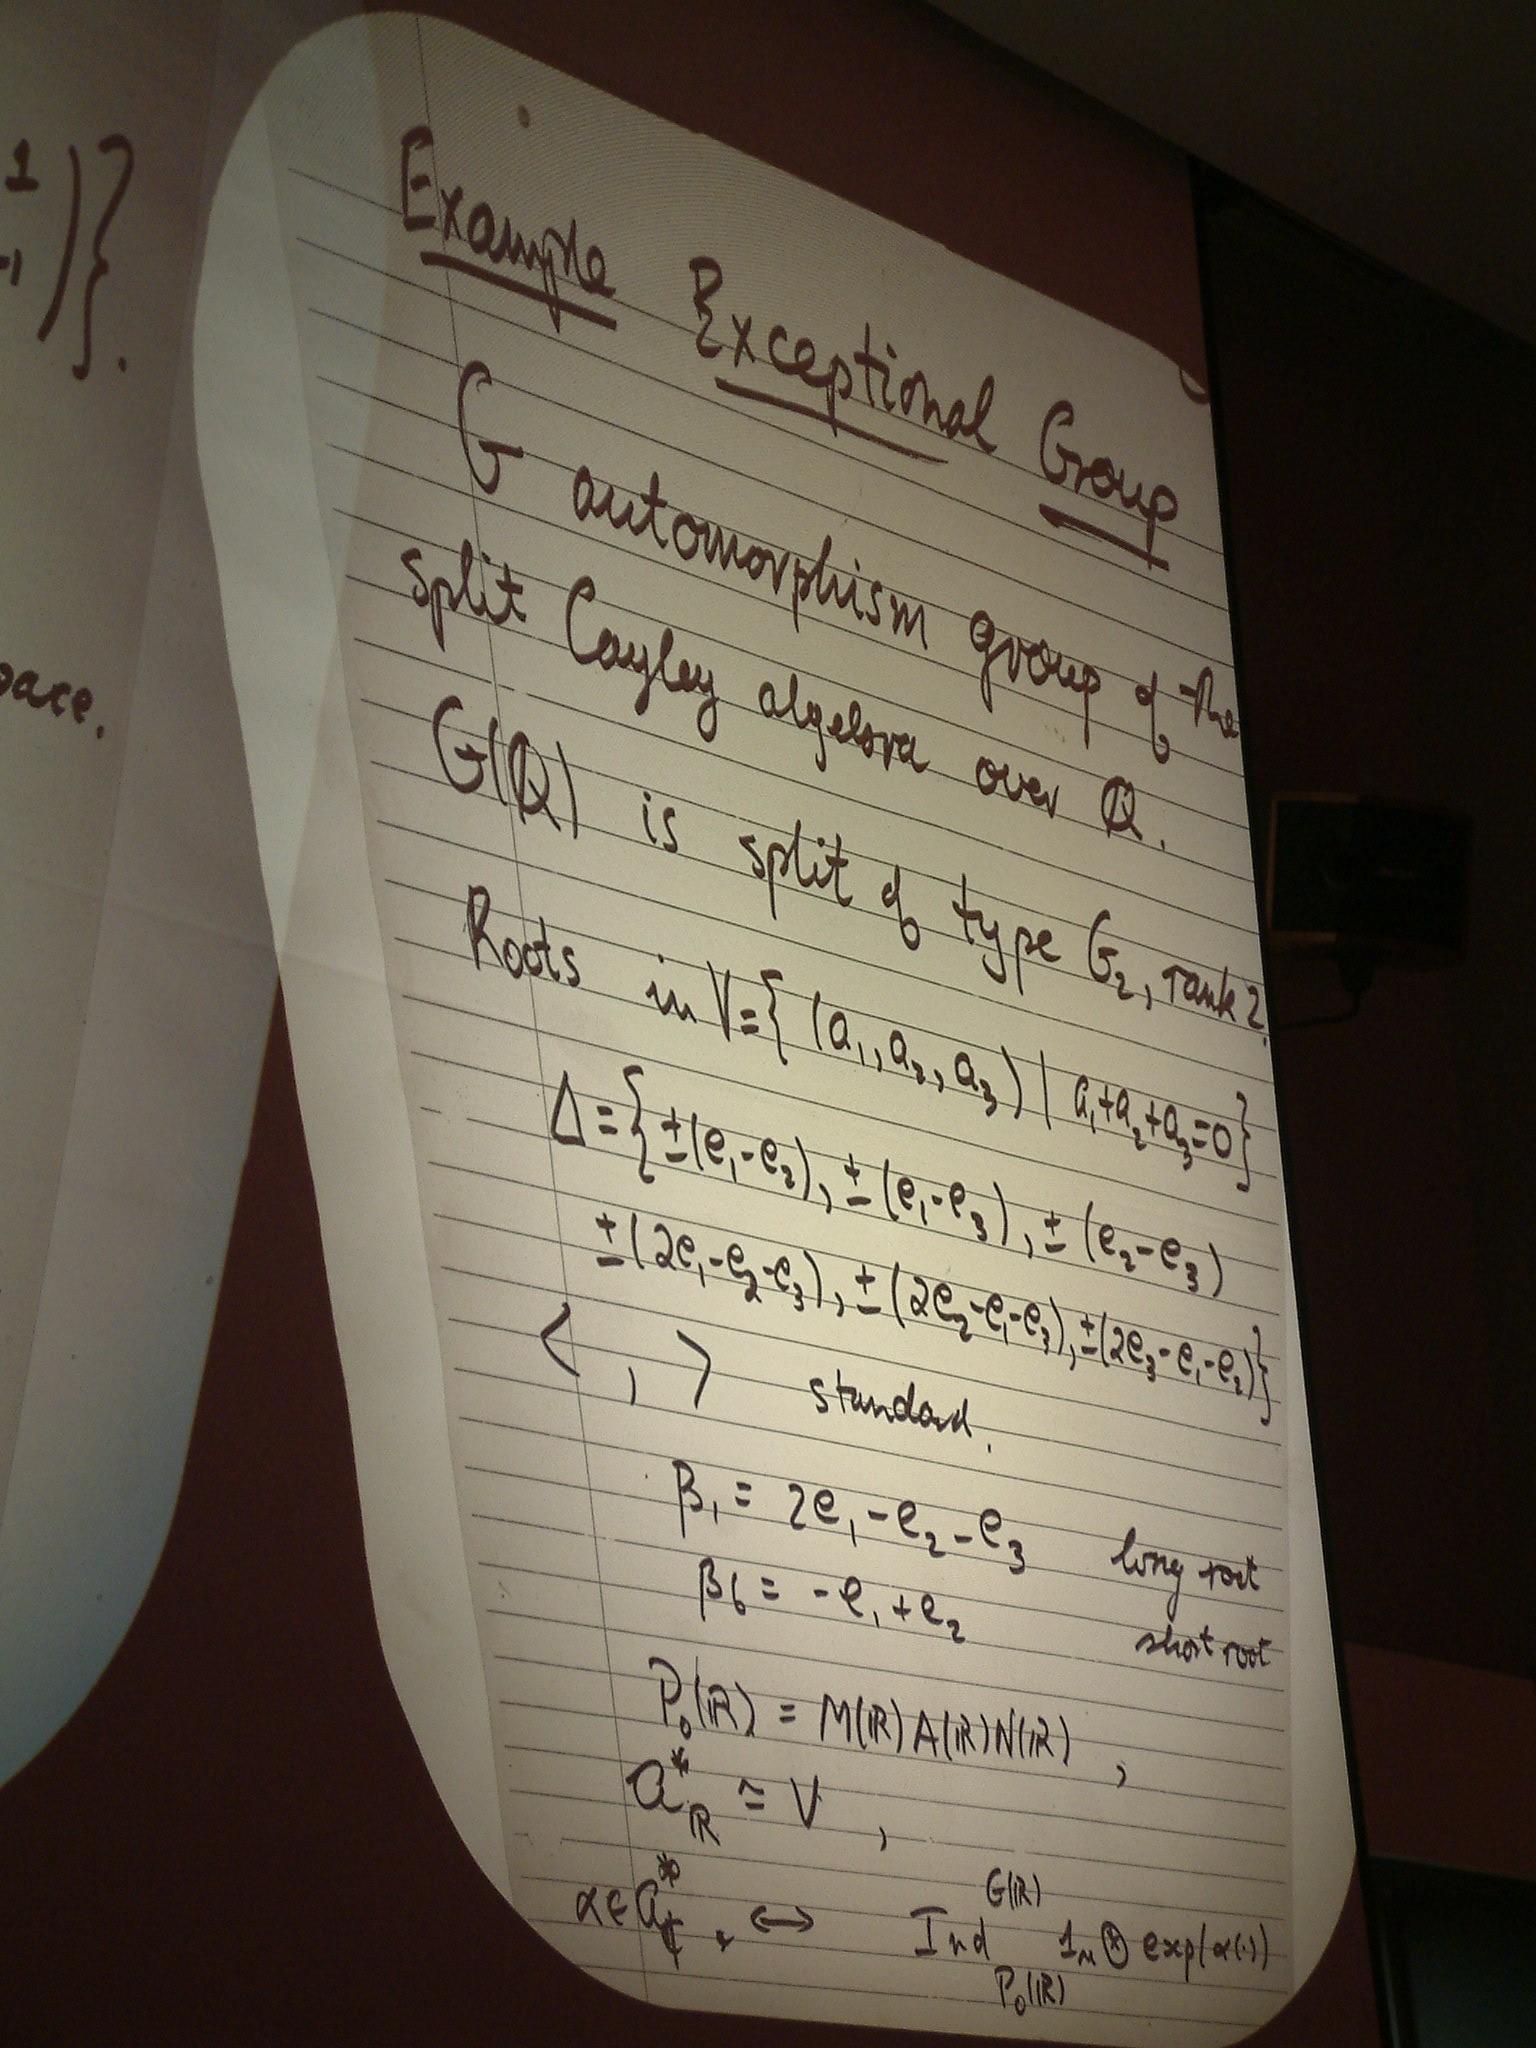 1
-1 ) } .
pace.
Example Exceptional Group
G automorphism group of the
split Cayley algebra over ℚ.
G(ℚ) is split of type G₂, rank 2.
Roots in V = { (a₁, a₂, a₃) | a₁+a₂+a₃=0}
Δ = { ±(e₁-e₂), ±(e₁-e₃), ±(e₂-e₃)
±(2e₁-e₂-e₃), ±(2e₂-e₁-e₃), ±(2e₃-e₁-e₂)}
< , > standard.
β₁ = 2e₁-e₂-e₃ long root
β₆ = -e₁+e₂ short root
P₀(ℝ) = M(ℝ)A(ℝ)N(ℝ) ,
𝔞*_ℝ ≃ V ,
α∈𝔞*_ℂ ↔ Ind^{G(ℝ)}_{P₀(ℝ)} 1_M ⊗ exp(α(·))